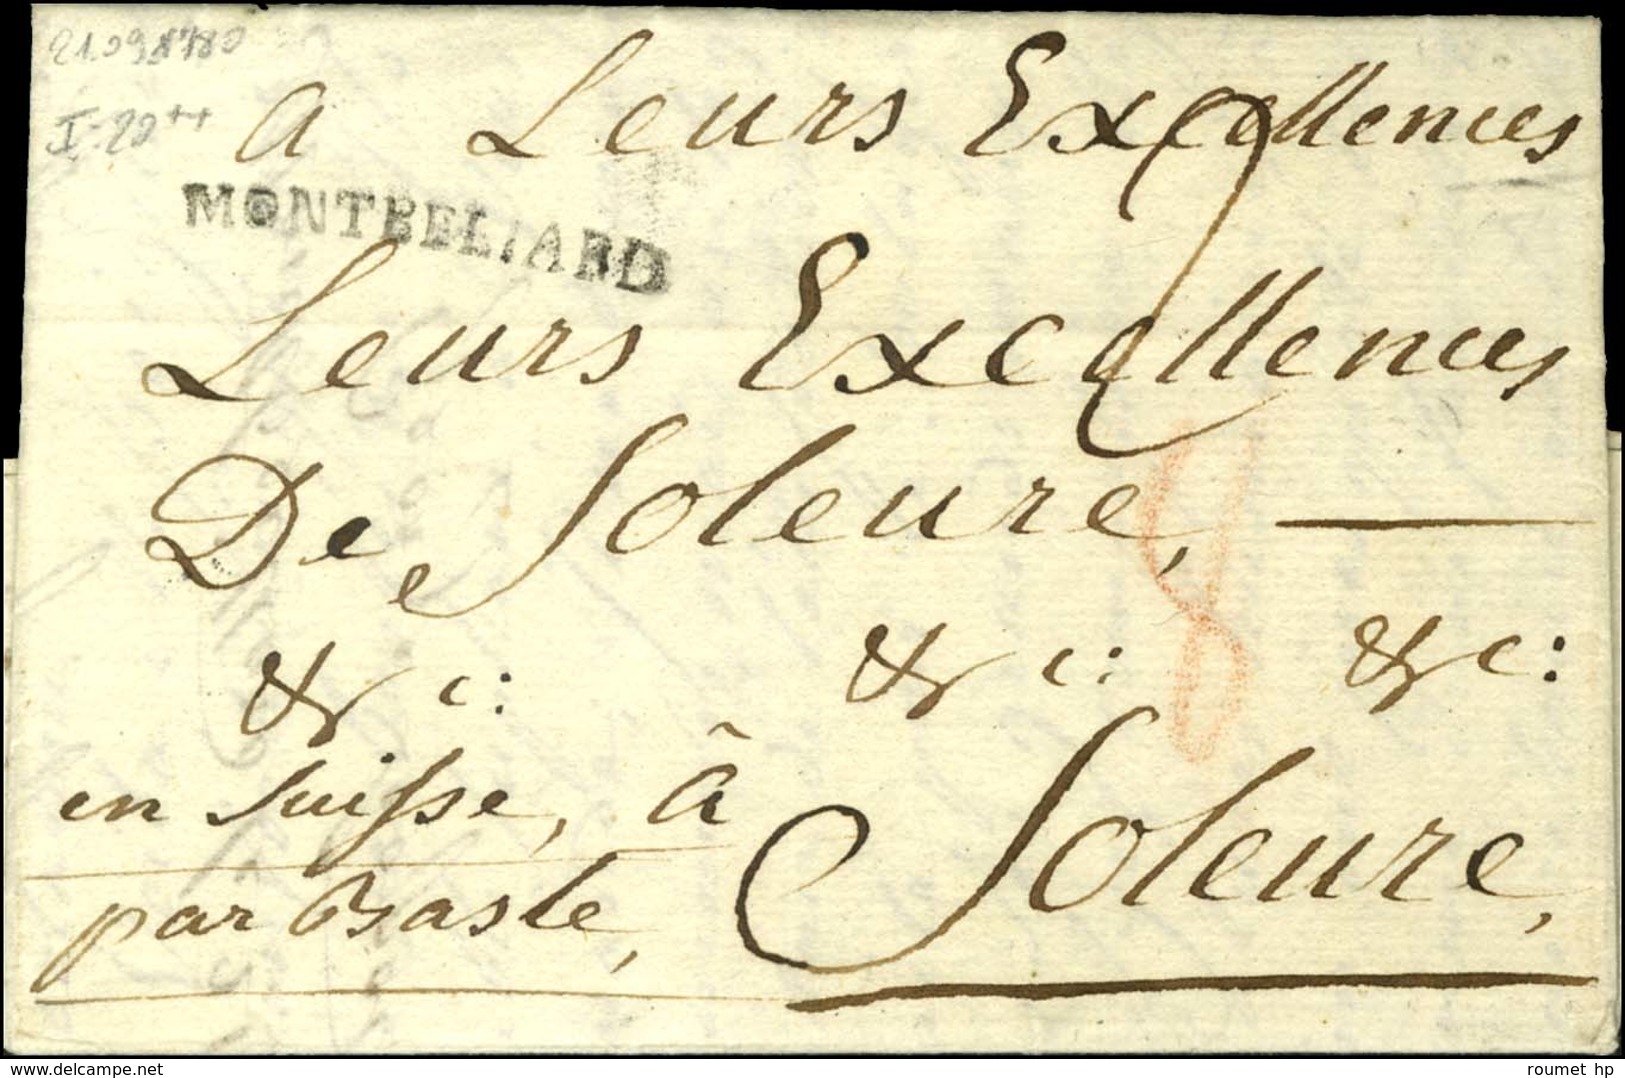 21.09 1780
I=20++
a Leurs Excellences
MONTBELIARD
Leurs Excellences
De Soleure,
&c: &c: &c:
en Suisse, à Soleure,
par Basle,
8
www.delcampe.net
roumet hp